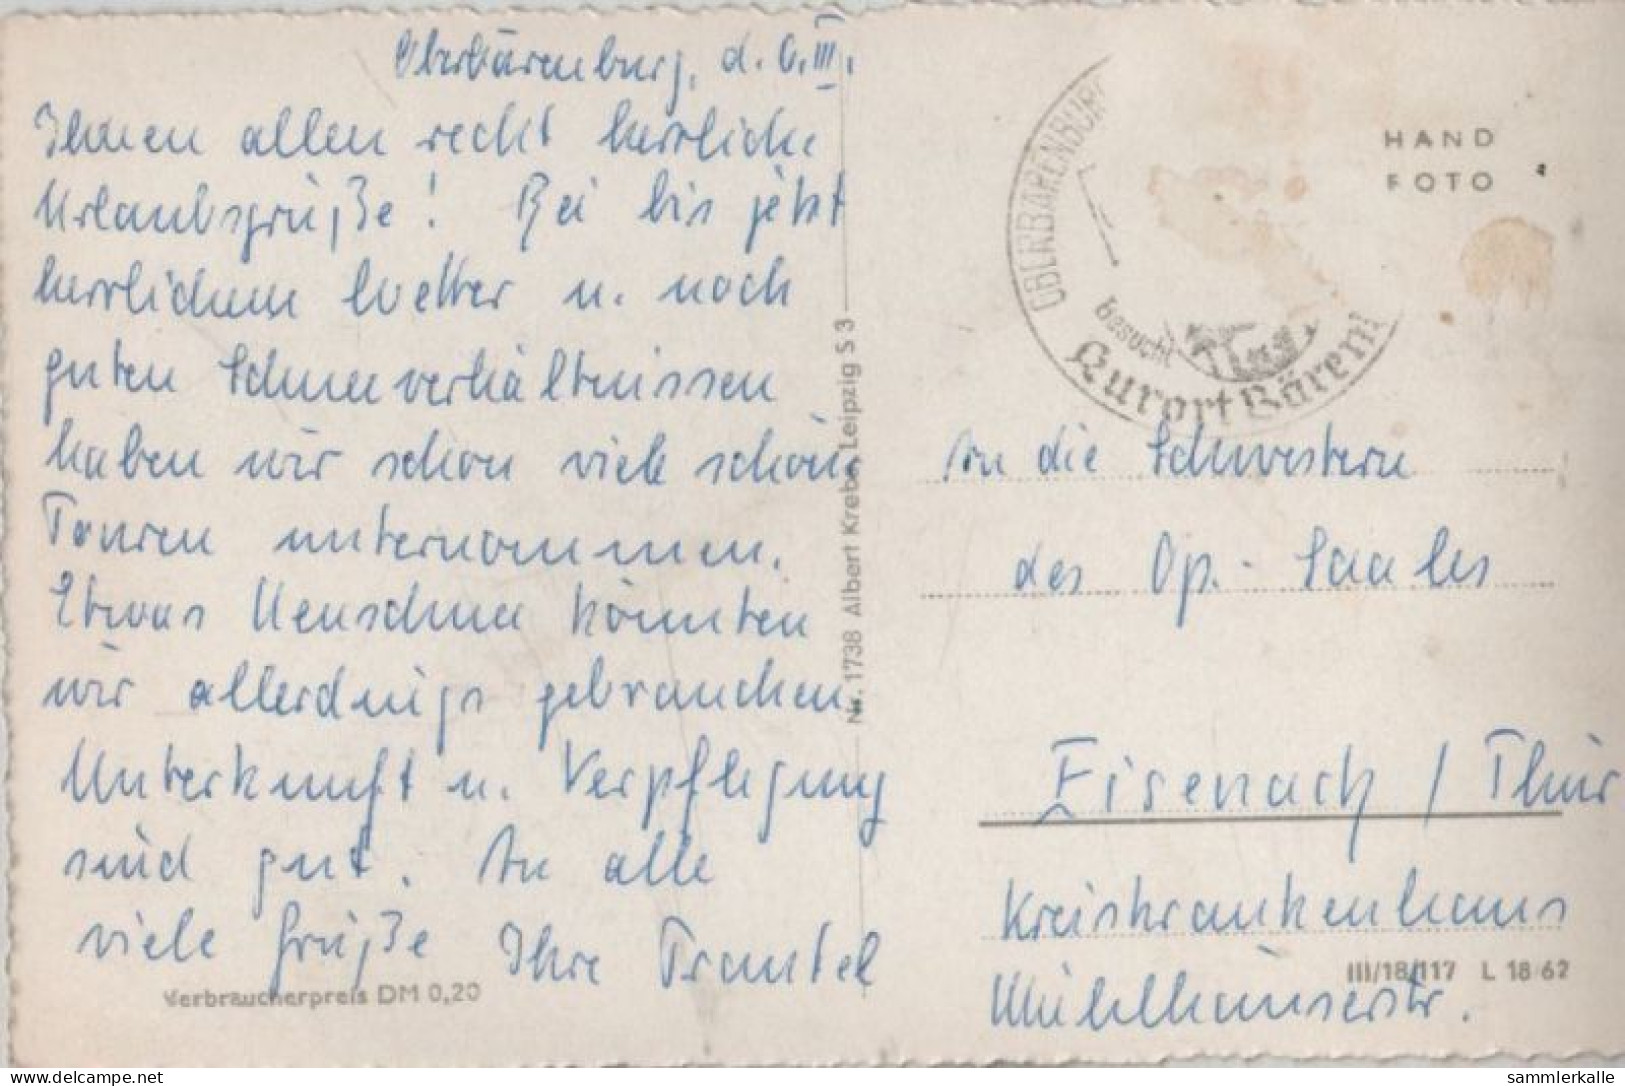 Oberbärenburg, d. 6. III.
Ihnen allen recht herrliche
Urlaubsgrüße! Bei bis jetzt
herrlichem Wetter u. noch
guten Schneeverhältnissen
haben wir schon viele schöne
Touren unternommen.
Etwas Neuschnee könnten
wir allerdings gebrauchen.
Unterkunft u. Verpflegung
sind gut. An alle
viele Grüße Ihre Trautel
Verbraucherpreis DM 0,20
Nr. 1738 Albert Krebs, Leipzig S 3
OBERBÄRENBURG
besucht
Kurort Bären
HAND
FOTO
An die Schwestern
des Op.-Saales
Eisenach / Thür
Kreiskrankenhaus
III/18/117 L 18/62
Mühlhäuserstr.
delcampe.net
sammlerkalle